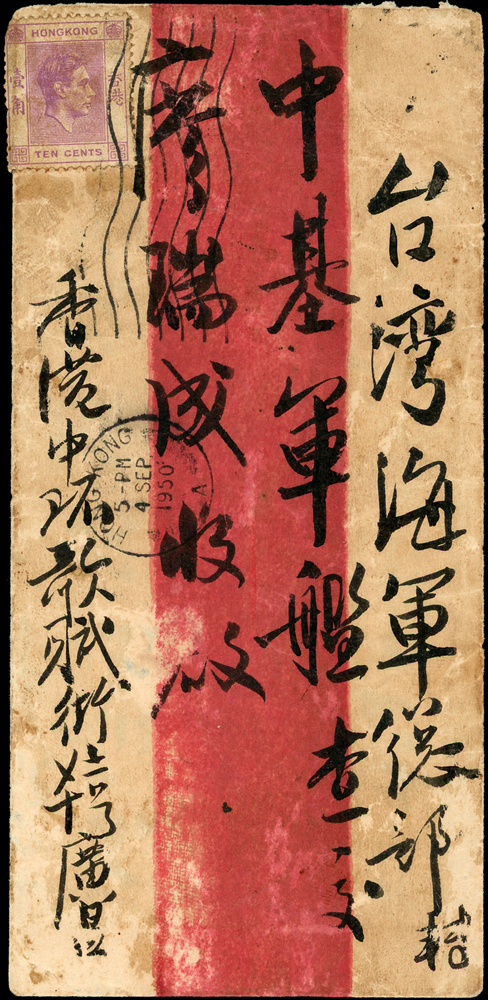 台湾海軍総部轉
中基軍艦查交
廖瑞成收啟
香港中环歌賦街
廣昌
HONGKONG
壹角
香港
TEN CENTS
HONG KONG
5-PM
4 SEP
1950